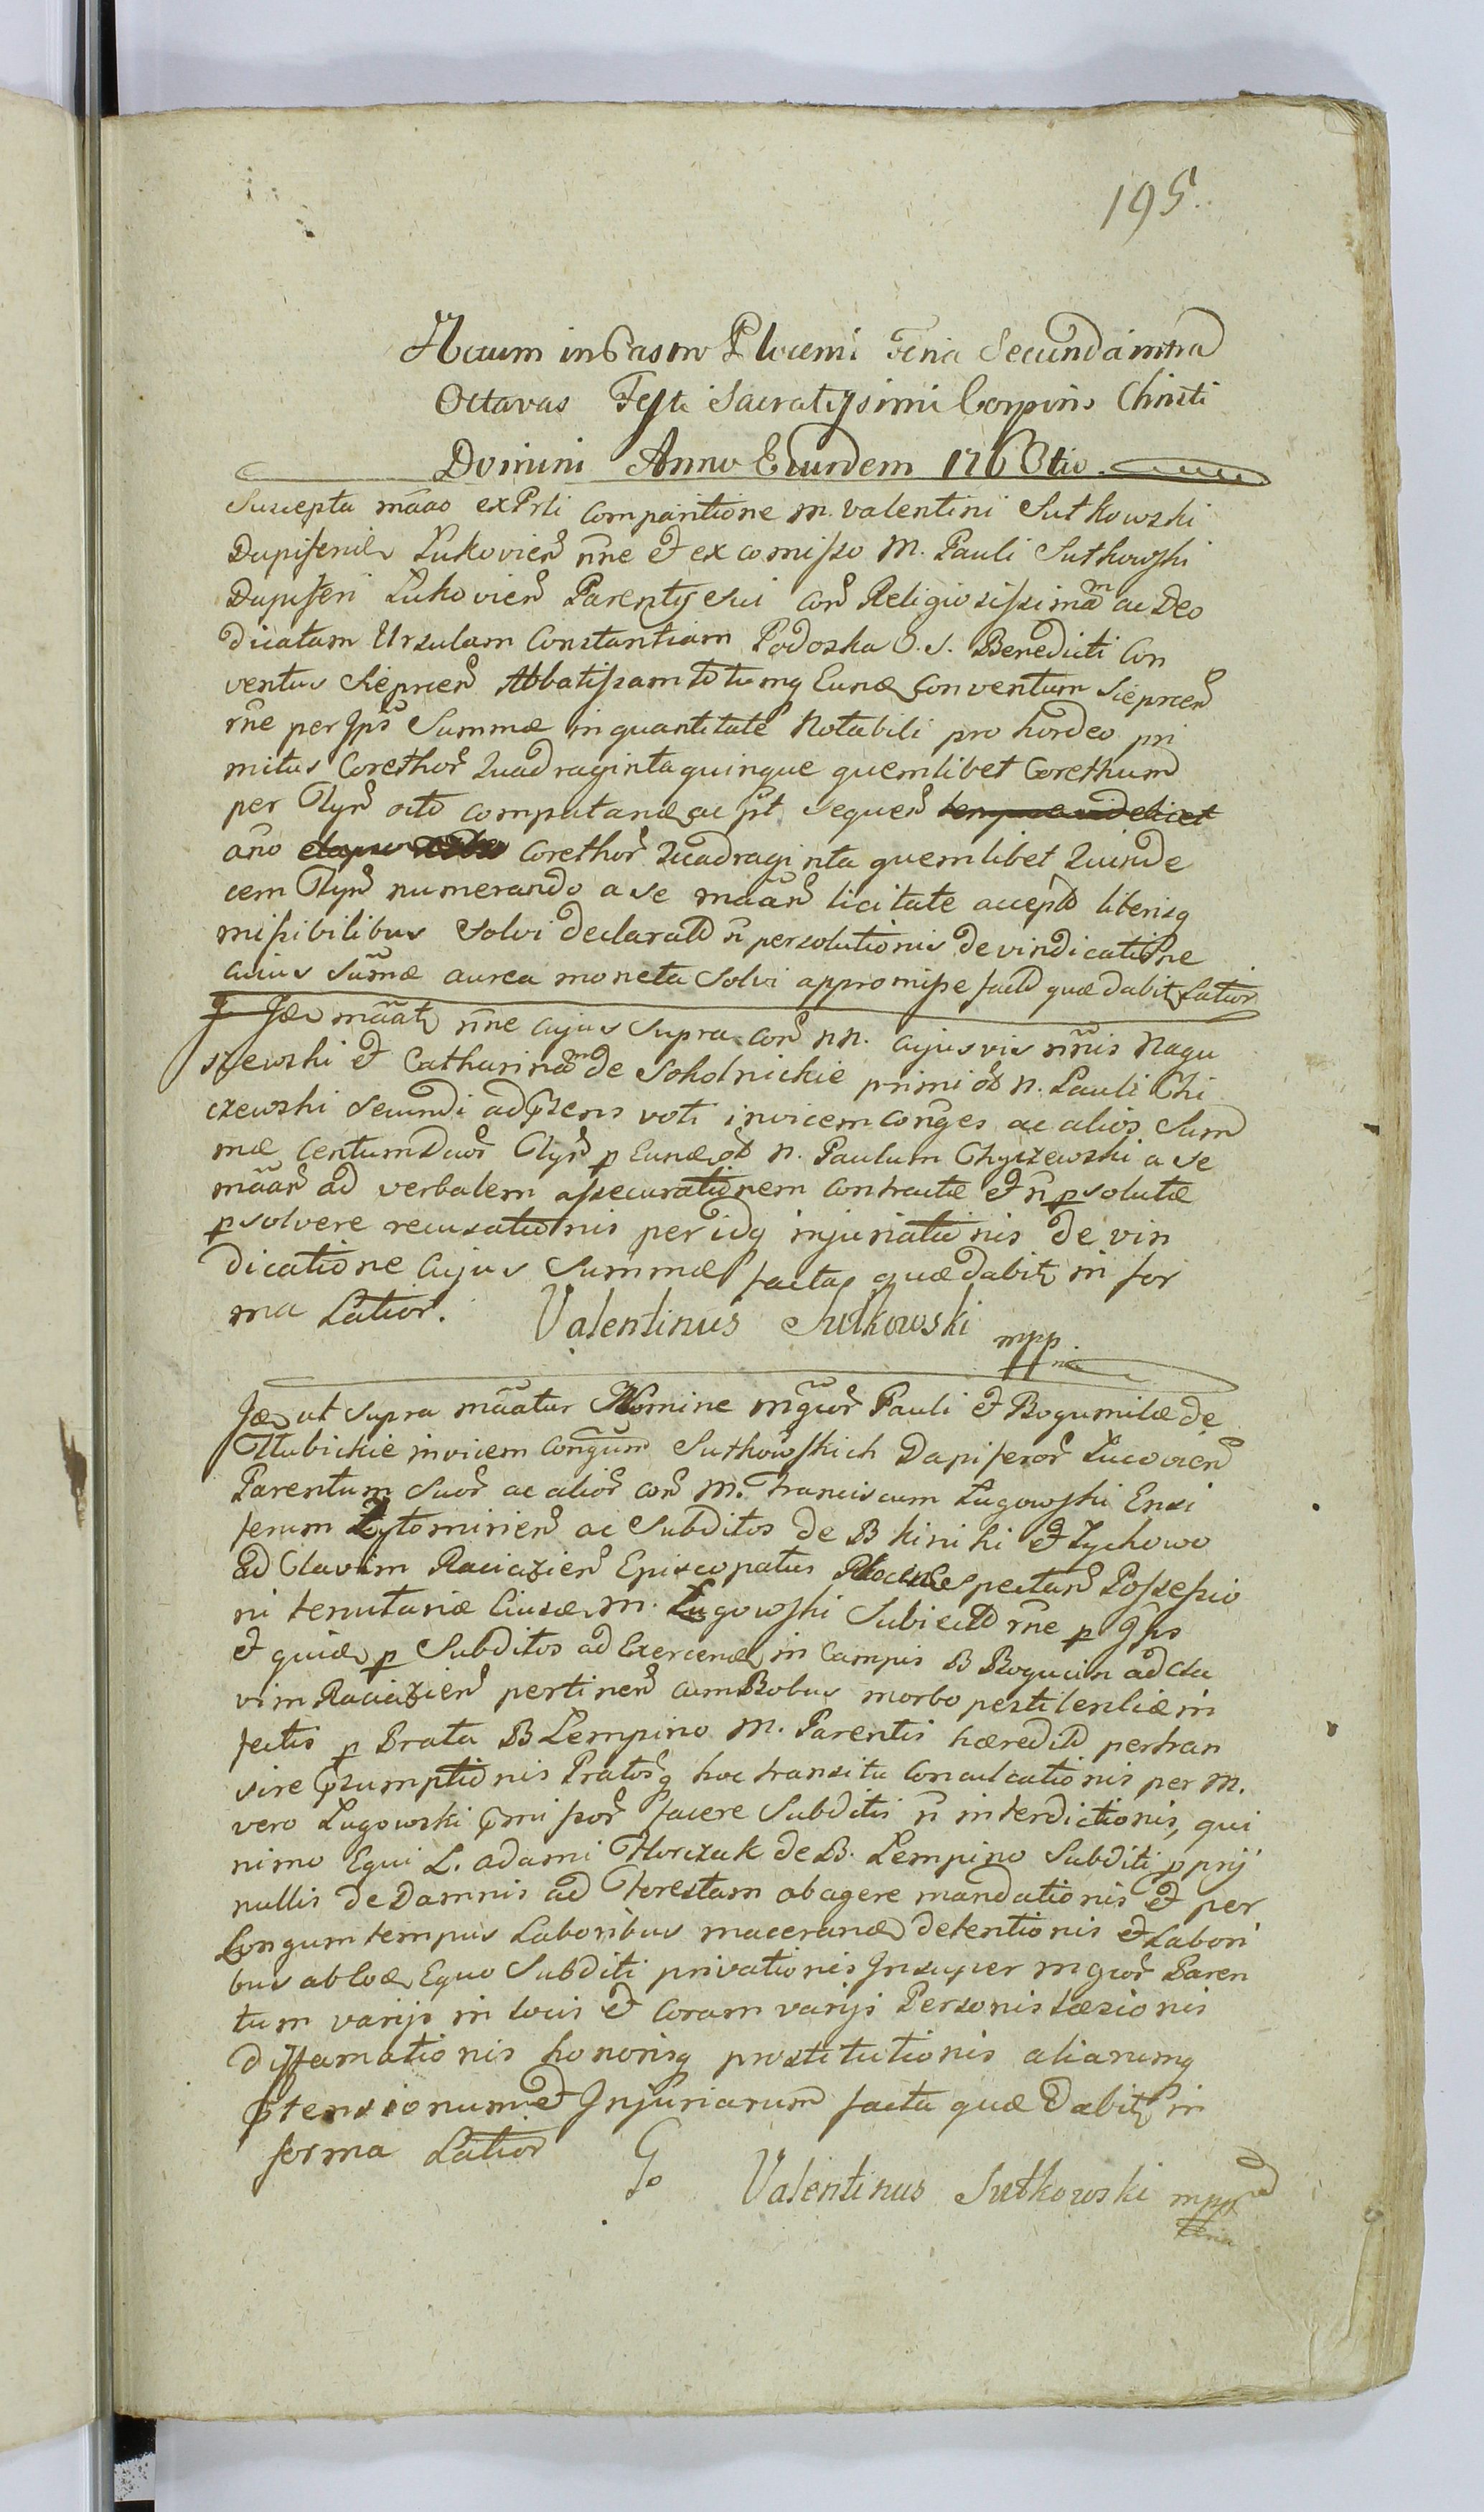 195.
Actum in Castro Plocensi Feria Secunda intra
Octavas Festi Sacratissimi Corporis Christi
Domini Anno Eiusdem 176
Suscepta mãao ex Prli comparitione M. Valentini Sutkowski
Dapiferid Lukovien nne et ex comisso M. Pauli Sutkowski
Dapiferi Lukovien Parentis sui con Religiosissimam ac Deo
dicatam Ursulam Constantiam Podoska O. S. Benedicti Con
ventus Sieprcen Abbatissam totumq Eund Conventum Sieprcen
rne per Jps Summæ in quantitate Notabili pro hordeo pri
mitus Corethor Quadraginta quinque quemlibet Corethum
per flor octo computand ac pt sequen tempore videlicet
ano elapso Corethor Quadraginta quemlibet Quinde
cem flor numerando a se mãan licitate accept liberisq
misibilibus solvi declarat n persolutionis de vindicatione
cuius sumæ aurea moneta solvi appromisse fact quæ dabit Latior
Id mãat nne cujus supra con NN. cujusvis nnis Nagu
szewski et Catharinam de Sokolnickie primi et N. Pauli Chi
czewski secundi adprens voti invicem conges ac alios Sum
mæ Centum Duor flor p Eund et N. Paulum Chyczewski a se
mãan ad verbalem assecurationem contractæ et n psolutæ
psolvere recusationis per idq injuriationis de vin
dicatione cujus Summæ facta quæ dabit in for
ma Latior. Valentinus Sutkowski mpp
Id ut supra mãatur Nomine mgcor Pauli et Bogumilæ de
Hlubickie invicem congum Sutkowskich Dapiferor Lucovien
Parentum suor ac alior con M. Franciscum Lugowski Ensi
ferum Zytomirien ac Subditos de B Kiniki et Zychowo
ad Clavim Raciazien Episcopatus Plocen spectan Possessio
ni tenutariæ Eiusd M. Lugowski Subiect rne p Jps
et quid p Subditos ad Exercend in Campis B Bogucin ad Cla
vim Raciazien pertinen cum Bobus morbo pestilentiæ in
fectis p Prata B Lempino M. Parentis hæredit pertran
sire psumptionis Pratorq hoc transitu Conculcationis per M.
vero Lugowski pmissor facere Subditis n interdictionis, qui
nimo Equi L. Adami Florczak de B. Lempino Subditi pprij
nullis de Damnis ad Forestam abagere mandationis et per
Longum tempus Laboribus macerand detentionis et Labori
bus ab Eod Equo Subditi privationis Insuper mgcor Paren
tum varijs in locis et coram varijs Personis Læsionis
diffamationis honorisq prostitutionis aliarumq
ptensionum et Injuriarum facta quæ dabit in
forma Latior
Valentinus Sutkowski mpp